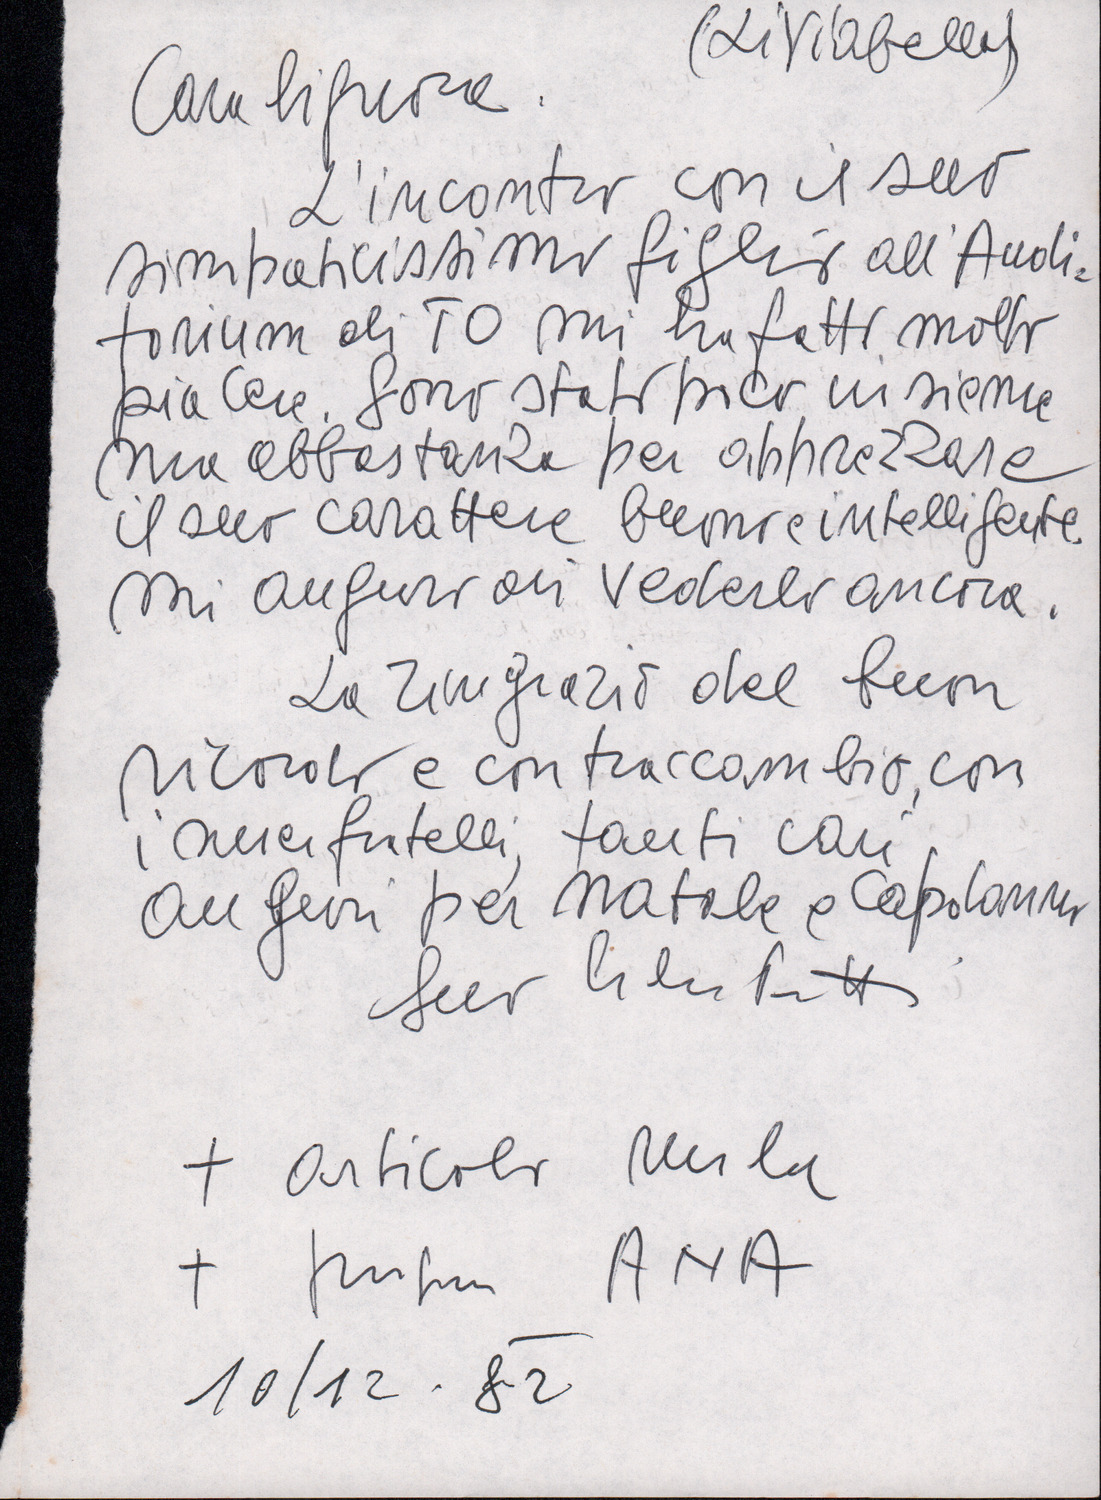 (Liviabella)
Cara Signora.
L'incontro con il suo
simpaticissimo figlio all'Audi=
torium di TO mi ha fatto molto
piacere. Sono stato poco insieme
ma abbastanza per apprezzare
il suo carattere buono e intelligente.
Mi auguro di vederlo ancora.
La ringrazio del buon
ricordo e contraccambio, con
i miei fratelli, tanti cari
auguri per Natale e Capodanno
Suo
+ articolo
+ ANA
10/12.82